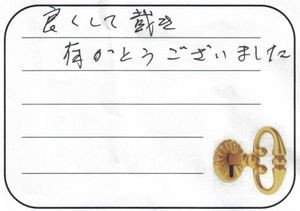 良くして戴き
有がとうございました